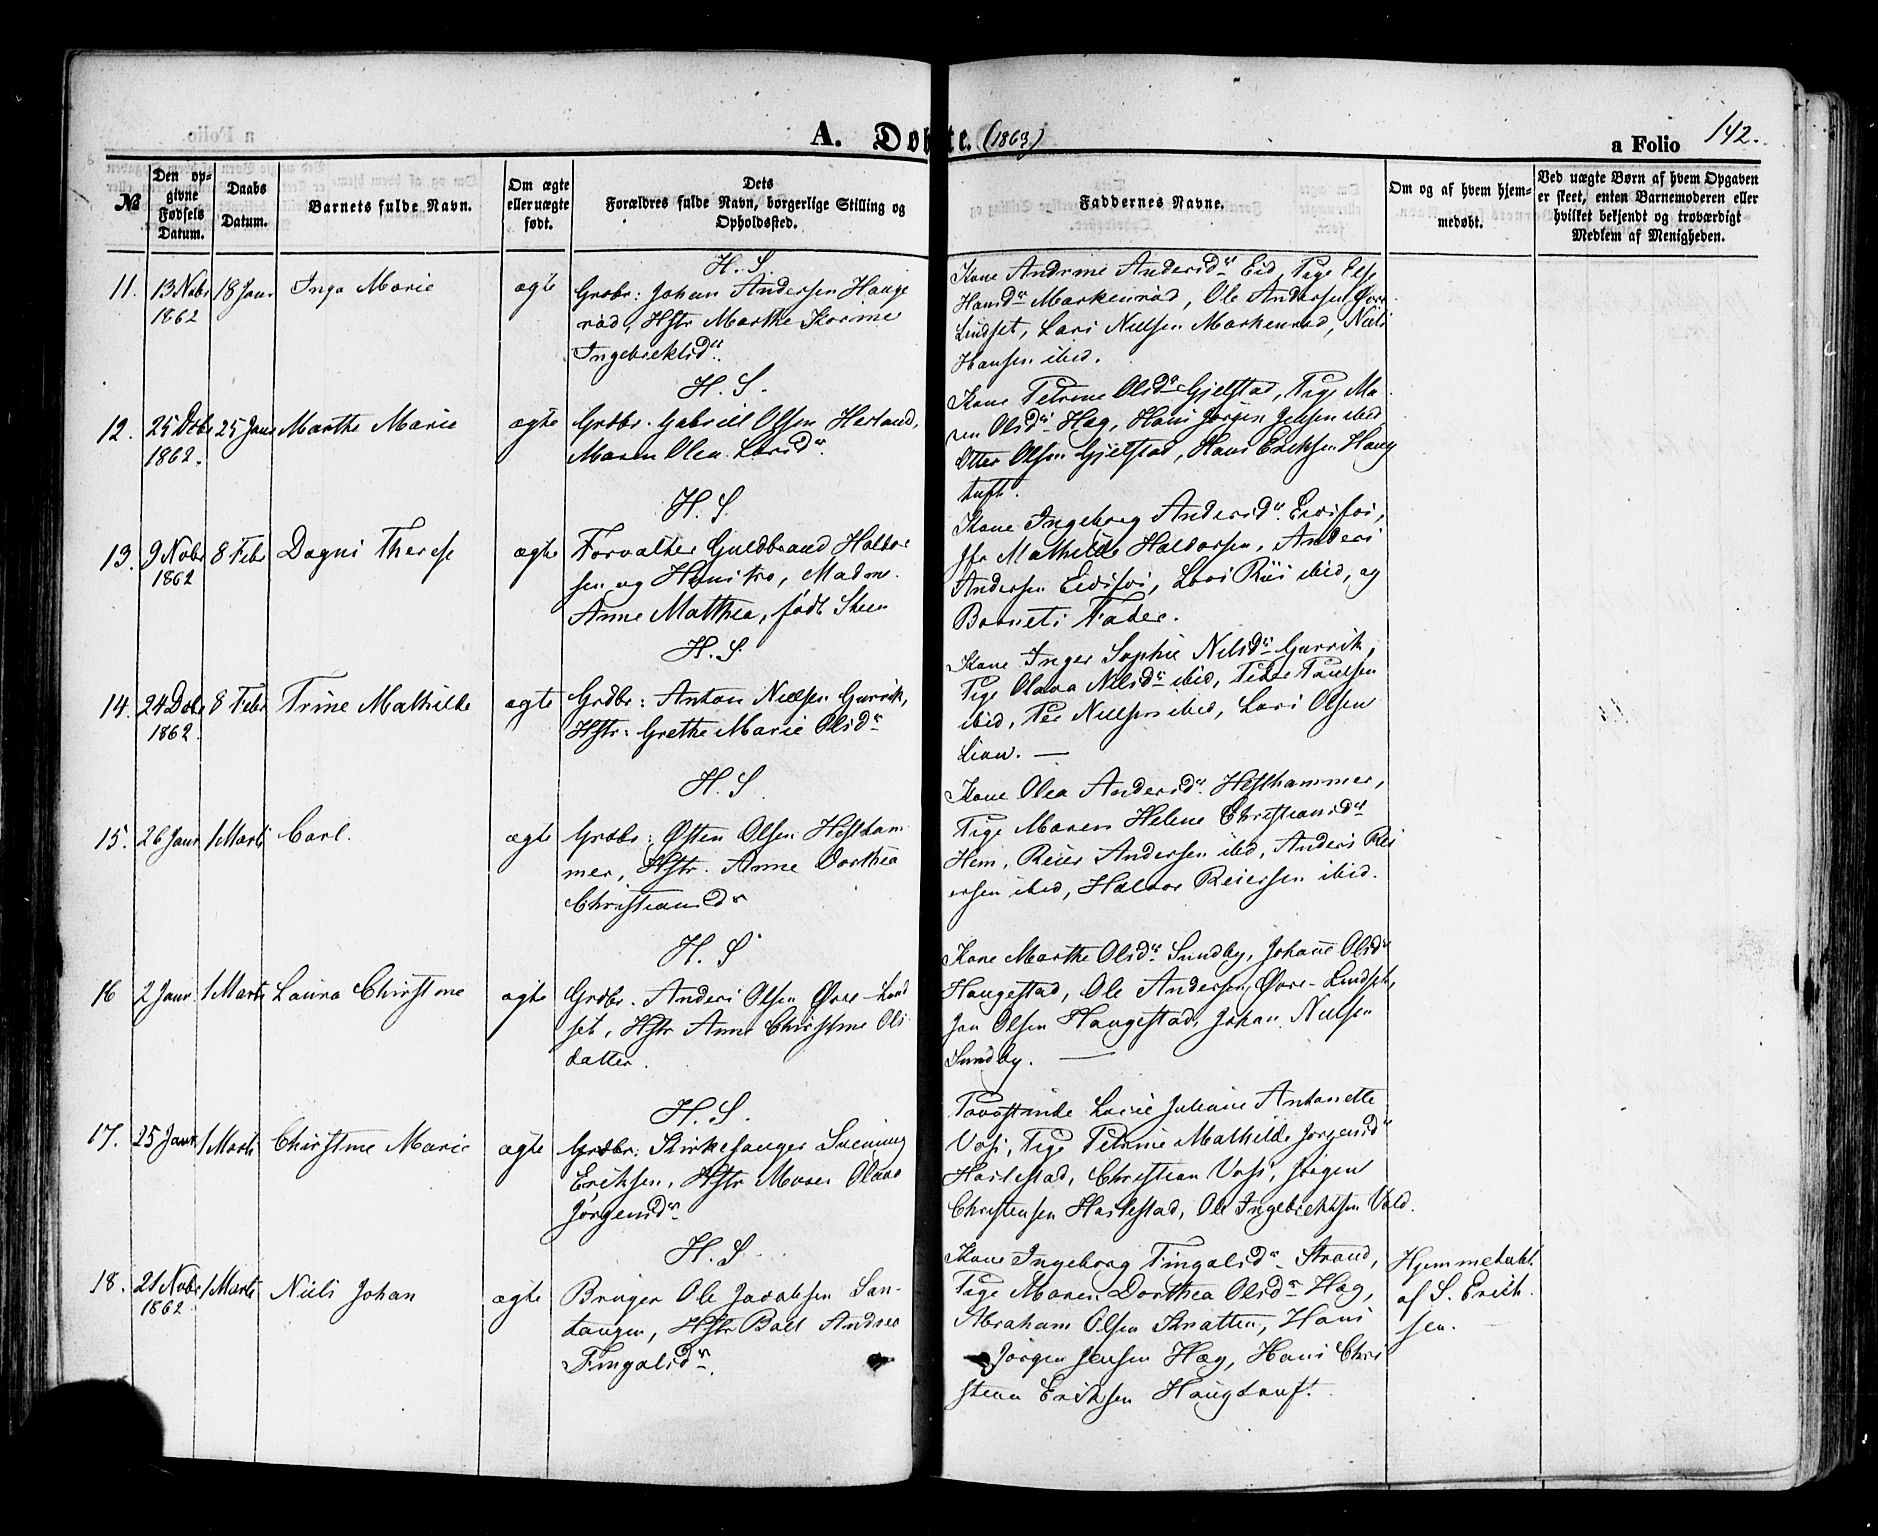 A. Døbte. (1863)
a Folio 142.
№
Den opgivne Fødsels Datum.
Daabs Datum.
Barnets fulde Navn.
Om ægte eller uægte født.
Dets Forældres fulde Navn, borgerlige Stilling og Opholdssted.
Faddernes Navne.
Om og af hvem hjemmedøbt.
Ved uægte Børn af hvem Opgaven er skeet, enten Barnemoderen eller hvilket bekjendt og troværdigt Medlem af Menigheden.
H. S.
11. 13 Nobr 1862 18 Janr Inga Marie ægte
Grdbr: Johan Andersen Hauge
rød, Hstr Marthe Karine
Ingebrektsdr.
Kone Andrine Andersdr Eid, Pige Else
Hansdr Markenrød, Ole Andersen Øvre
Lindset, Lars Nielsen Markenrød, Niels
Hansen ibid.
H. S.
12. 25 Dcbr 1862. 25 Janr Marthe Marie ægte
Grdbr. Gabriel Olsen Herland,
Maren Olea Larsdr.
Kone Petrine Olsdr Gjelstad, Pige Ma
ren Olsdr Hæg, Hans Jørgen Jensen ibid
Otter Olsen Gjelstad, Hans Eriksen Haug
tuft.
H. S.
13. 9 Nobr 1862 8 Febr Dagni Therese ægte
Forvalter Guldbrand Haldor
sen og Hustro, Madme.
Anne Mathea, født Steen
Kone Ingeborg Andersdr. Eidsfos,
Jfr Mathilde Haldorsen, Anders
Andersen Eidsfos, Lars Riis ibid, og
Barnets Fader.
H. S.
14. 24 Dcbr 1862. 8 Febr Trine Mathilde ægte
Grdbr: Anton Nielsen Gurrik,
Hstr: Grethe Marie Olsdr
Kone Inger Sophie Nilsdr Gurrik,
Pige Olava Nilsdr ibid, Peder Paulsen
ibid, Per Nielsen ibid, Lars Olsen
Lian. —
H. S.
15. 26 Janr 1 Marts Carl. ægte
Grdbr: Østen Olsen Hestham
mer, Hstr. Anne Dorthea
Christiansdr
Kone Olea Andersdr. Hesthammer,
Pige Maren Helene Christiansdr
Hem, Reier Andersen ibid, Anders Rei
ersen ibid, Haldor Reiersen ibid.
H. S
16 2 Janr. 1 Marts Laura Christine ægte
Grdbr. Anders Olsen Øvre-Lind
set, Hstr Anne Christine Ols
datter.
Kone Marthe Olsdr Sundby, Johanne Olsdr
Haugestad, Ole Andersen Øvre-Lindset,
Jan Olsen Haugestad, Johan Nielsen
Sundby. —
H. S.
17. 25 Janr. 1 Marts Christine Marie ægte
Grdbr: Kirkesanger Svening
Eriksen, Hstr Maren Olava
Jørgensdr
Provstinde Lovise Juliane Antonette
Voss, Pige Petrine Mathilde Jørgensdr
Harlestad, Christian Voss, Jørgen
Christensen Harlestad, Ole Ingebrektsen Vold.
H. S.
18. 21 Nobr 1862 1 Marts Niels Johan ægte
Bruger Ole Jacobsen San-
tangen, Hstr Boel Andrea
Fingalsdr.
Kone Ingeborg Fingalsdr Strand,
Pige Maren Dorthea Olsdr Hæg,
Abraham Olsen Knatten, Hans
Jørgen Jensen Hæg, Hans Chri
stian Eriksen Haugtuft.
Hjemmedøbt
af S. Erich
sen.